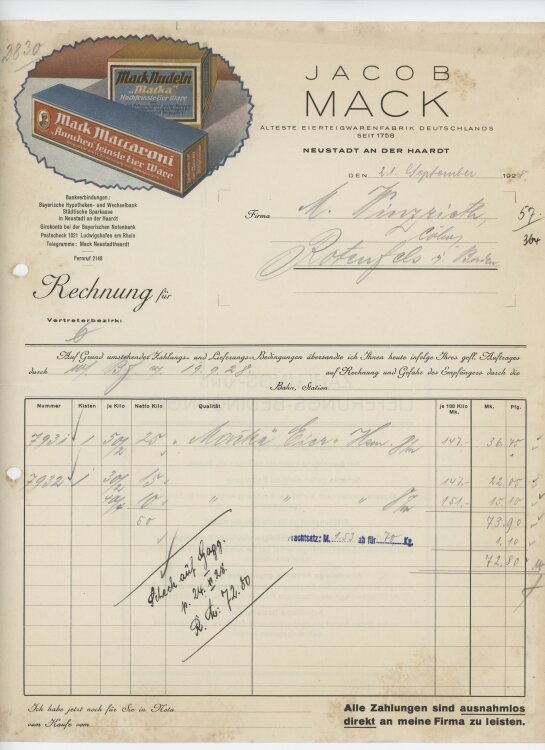 2830
Mack Nudeln
"Macka"
Hochfeinste Eier Ware
Mack Maccaroni
feinste Eier Ware
JACOB
MACK
ÄLTESTE EIERTEIGWARENFABRIK DEUTSCHLANDS
SEIT 1758
NEUSTADT AN DER HAARDT
DEN 21. September 192
Bankverbindungen:
Bayerische Hypotheken- und Wechselbank
Städtische Sparkasse
in Neustadt an der Haardt
Girokonto bei der Bayerischen Notenbank
Postscheck 1021 Ludwigshafen am Rhein
Telegramme: Mack Neustadthaardt
Fernruf 2148
Firma
57.
364
Rotenfels i. Baden
Rechnung für
Vertreterbezirk:
6
Auf Grund umstehender Zahlungs- und Lieferungs-Bedingungen übersandte ich Ihnen heute infolge Ihres gefl. Auftrages
durch 19.9.28. auf Rechnung und Gefahr des Empfängers durch die
Bahn, Station
Nummer Kisten je Kilo Netto Kilo Qualität je 100 Kilo Mk. Mk. Pfg.
7931 1 50/2 25 Eier 147.- 36 75
7932 1 30/2 15 " " 147.- 22 05
10 " " 151.- 15 10
50 73 90
Frachtsatz: M. 1.53 ab für 70 Kg. 1 10
72 80
Scheck auf Gagg.
p. 24. IX 28.
R. M: 72.80
Ich habe jetzt noch für Sie in Nota
vom Kaufe vom
Alle Zahlungen sind ausnahmlos
direkt an meine Firma zu leisten.